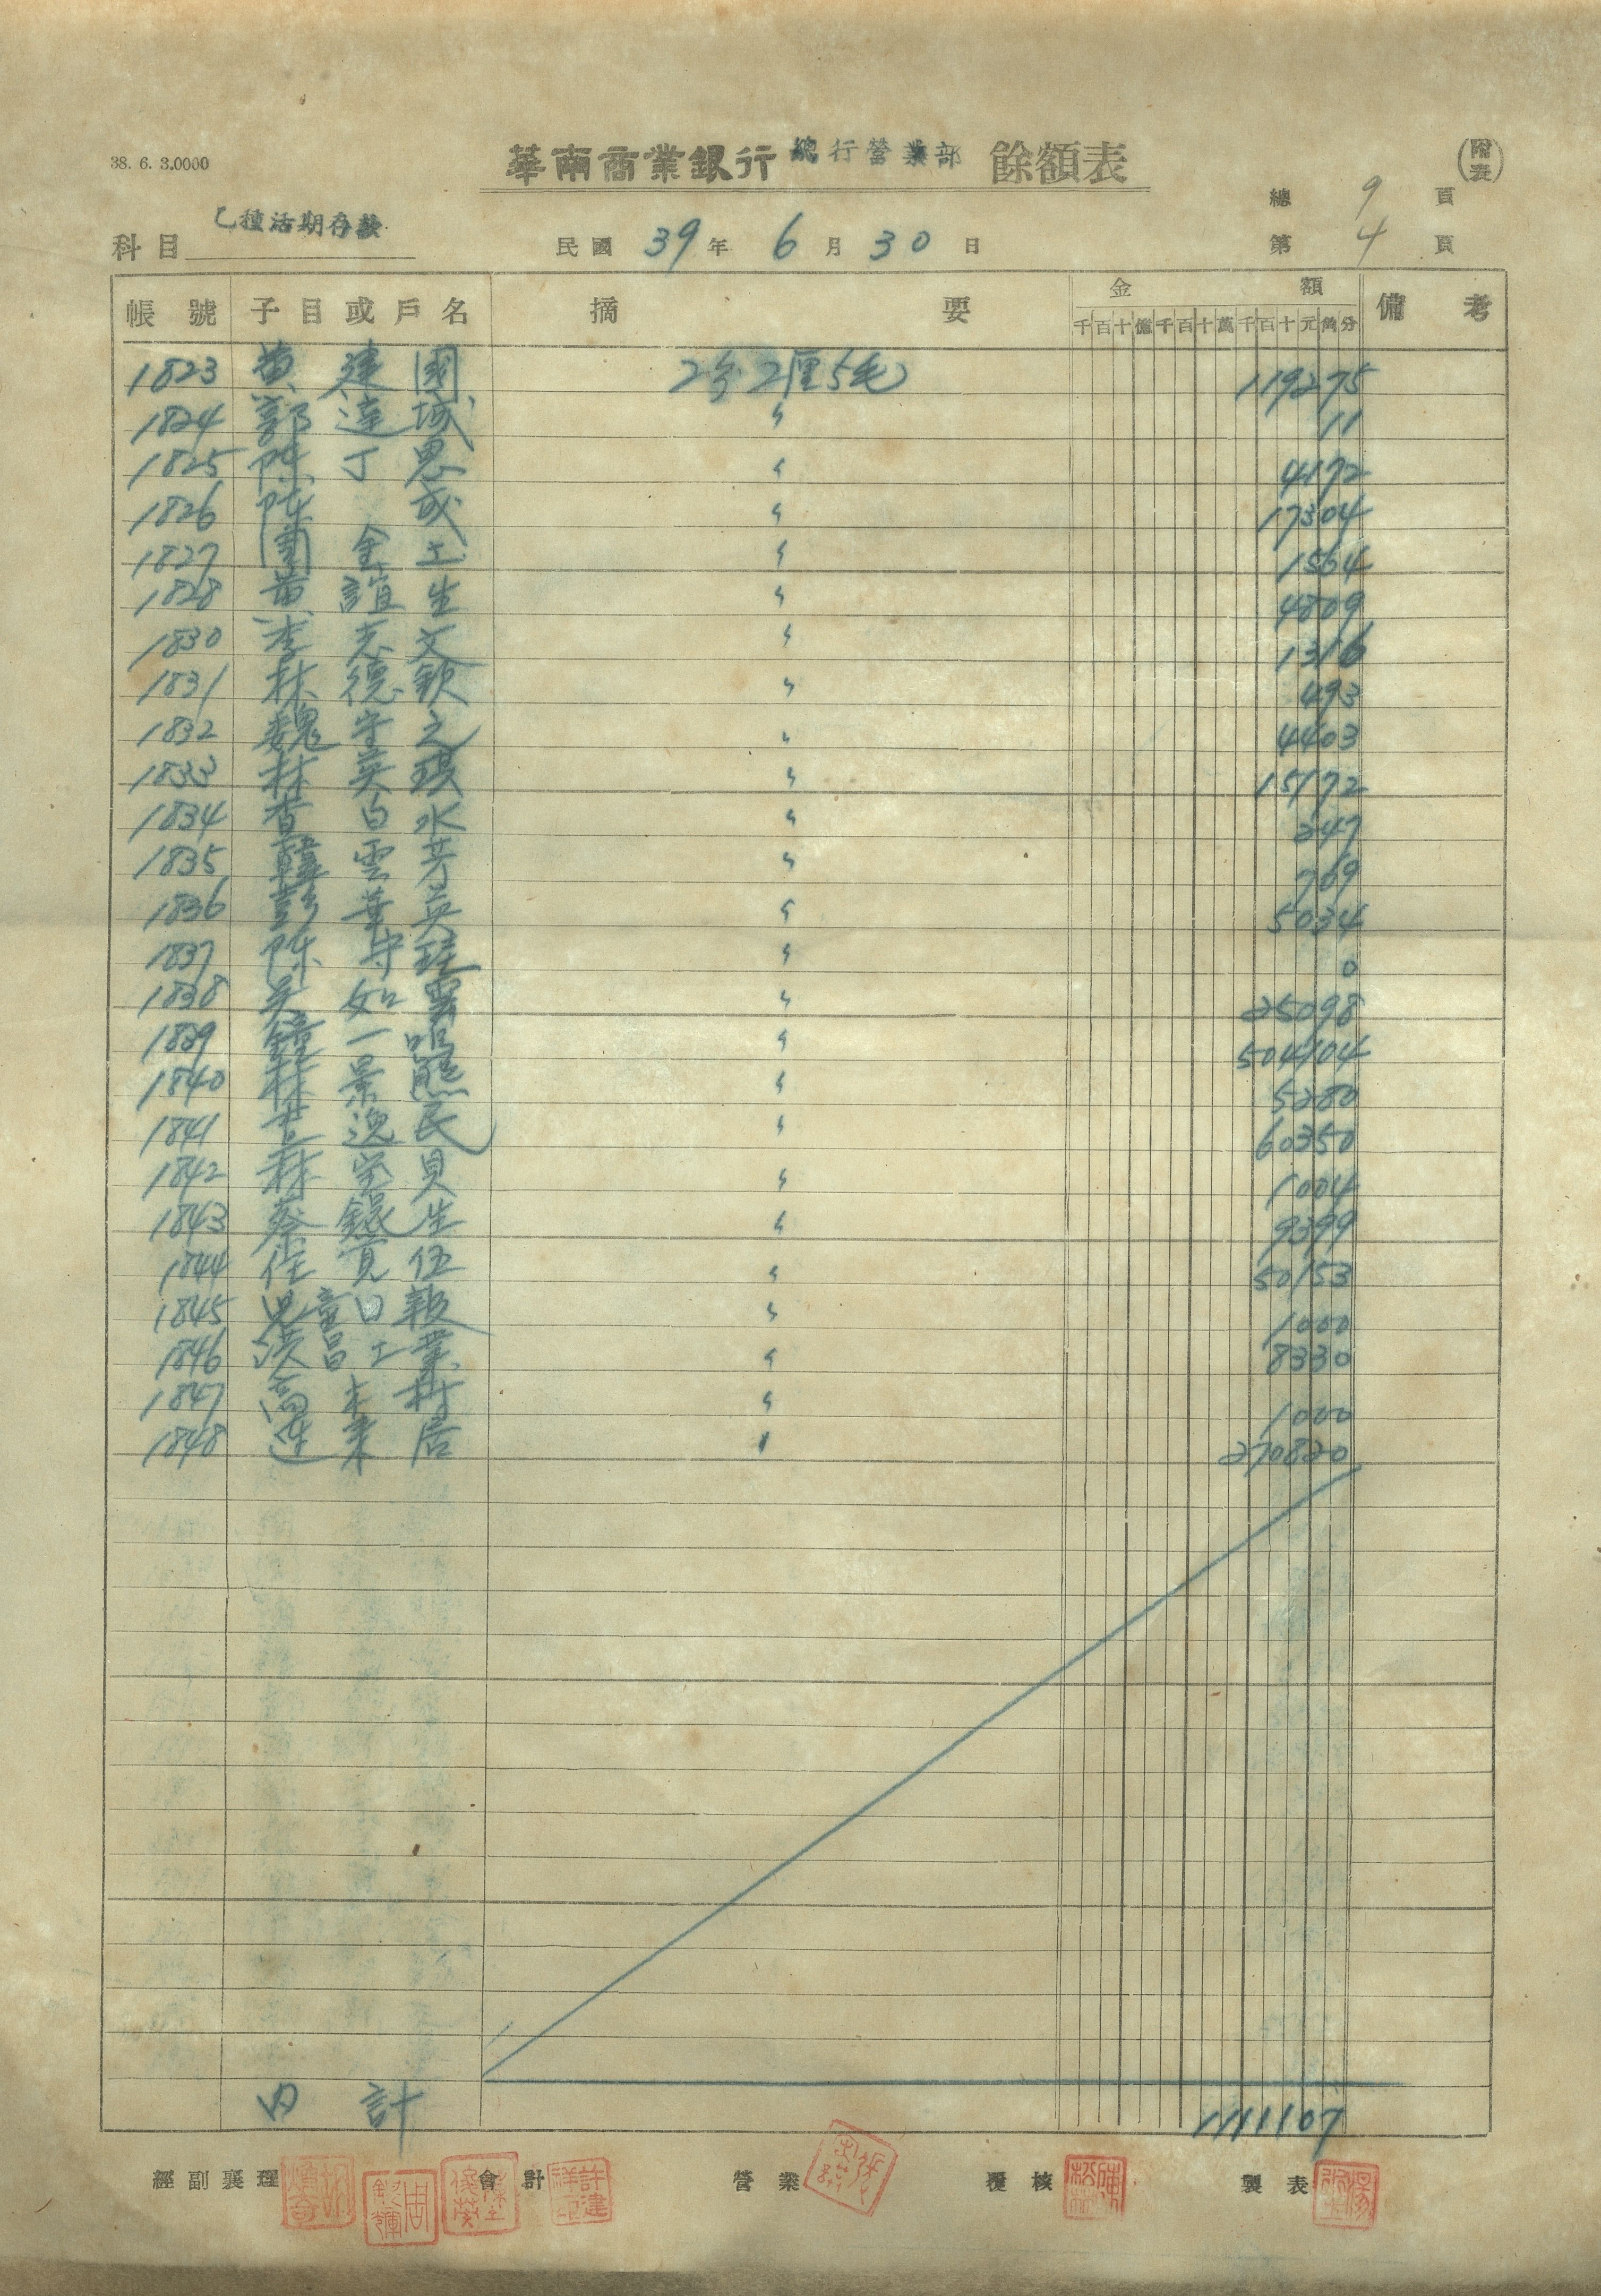 38. 6. 3.0000
華南商業銀行 總行營業部 餘額表
(附表)
總 9 頁
科目 乙種活期存款
民國 39 年 6 月 30 日
第 4 頁
帳號 子目或戶名 摘要 金額 備考
千百十億千百十萬千百十元角分
1823 黃建國 2分2厘5毛 119275
1824 郭達城 〃 11
1825 陳丁恩 〃 4172
1826 陳成 〃 17304
1827 金土 〃 1564
1828 黃誼生 〃 4809
1830 李志文 〃 1316
1831 林德欽 〃 493
1832 魏守之 〃 4403
1833 林英琪 〃 15172
1834 白水 〃 247
1835 韓雲芳 〃 769
1836 彭葉英 〃 5034
1837 陳守 〃 0
1838 吳如雲 〃 25098
1839 鐘一鳴 〃 504104
1840 林景熊 〃 5280
1841 黃逸民 〃 60350
1842 林貝 〃 1004
1843 蔡生 〃 9399
1844 任寬伍 〃 50153
1845 兒童日報 〃 1000
1846 洪昌工業 〃 8330
1847 高木村 〃 1000
1848 連居 〃 270820
內計 1111107
經副襄理 會計 營業 覆核 製表
許建祥